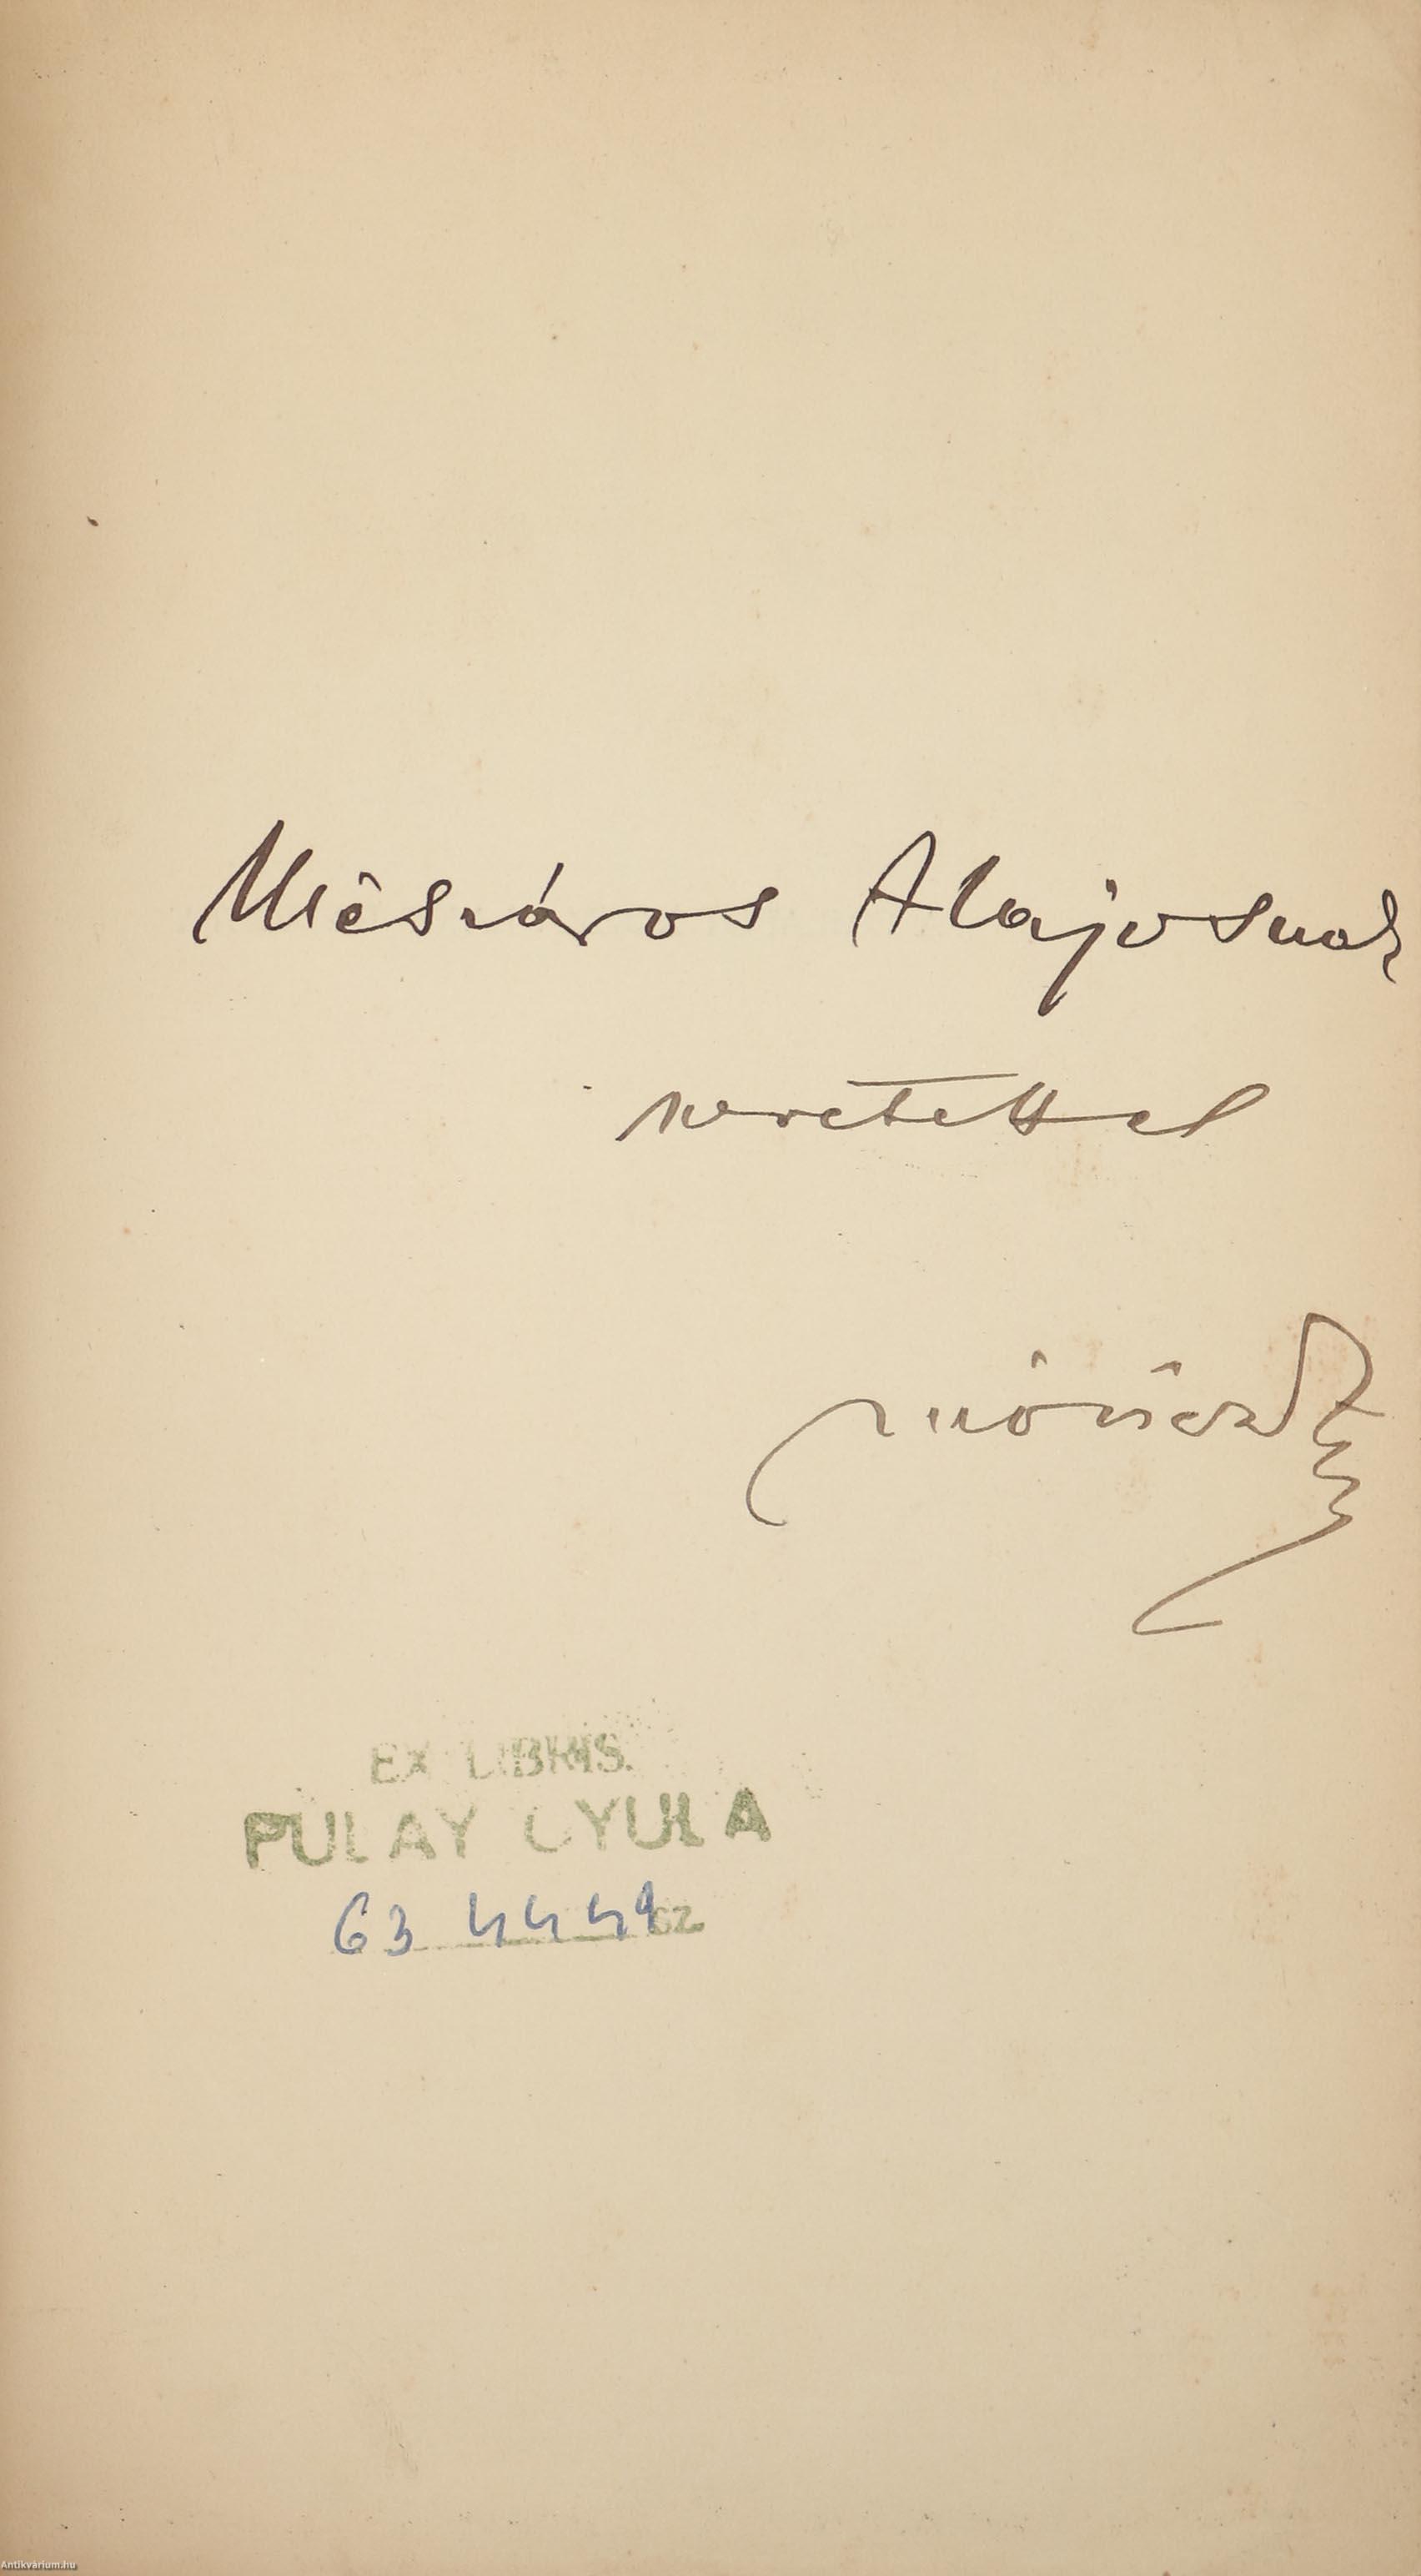 Mészáros Alajosnak
szeretettel
Móricz
EX LIBRIS.
PULAY GYULA
63 444 sz
Antikvárium.hu